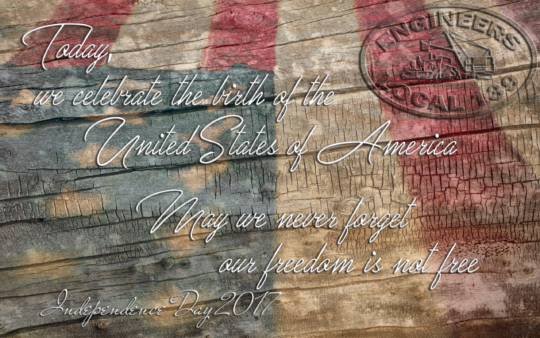 ENGINEERS
LOCAL 139
Today,
we celebrate the birth of the
United States of America
May we never forget
our freedom is not free
Independence Day 2017